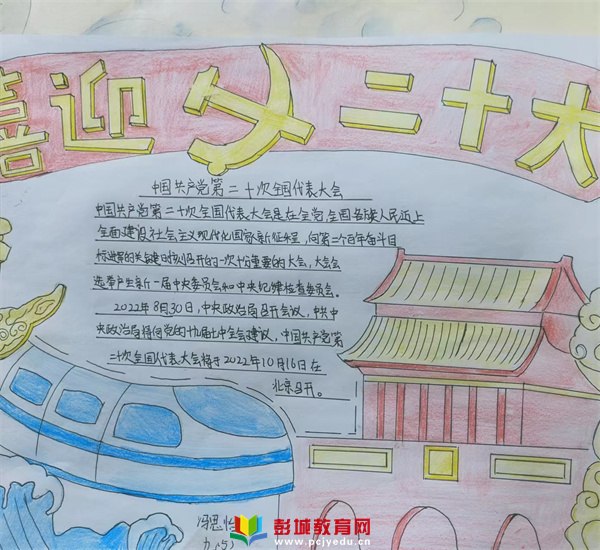 喜迎二十大
中国共产党第二十次全国代表大会
中国共产党第二十次全国代表大会是在全党全国各族人民迈上
全面建设社会主义现代化国家新征程,向第二个百年奋斗目
标进军的关键时刻召开的一次十分重要的大会,大会会
选举产生新一届中央委员会和中央纪律检查委员会。
2022年8月30日,中央政治局召开会议,中共中
央政治局将向党的十九届七中全会建议,中国共产党第
二十次全国代表大会将于2022年10月16日在
北京召开。
冯思怡
彭城教育网
www.pcjyedu.cn